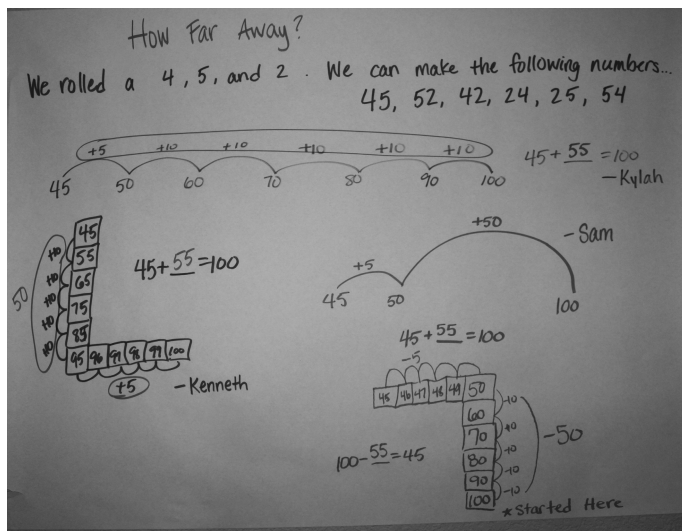 How Far Away?
We rolled a 4, 5, and 2. We can make the following numbers...
45, 52, 42, 24, 25, 54
+5 +10 +10 +10 +10 +10
45 50 60 70 80 90 100
45 + 55 = 100
- Kylah
45
55
65
75
85
95 96 97 98 99 100
+10
+10
+10
+10
+10
50
+5
45 + 55 = 100
- Kenneth
+50
- Sam
+5
45 50 100
45 + 55 = 100
-5
45 46 47 48 49 50
60
70
80
90
100
-10
-10
-10
-10
-10
-50
100 - 55 = 45
* Started Here